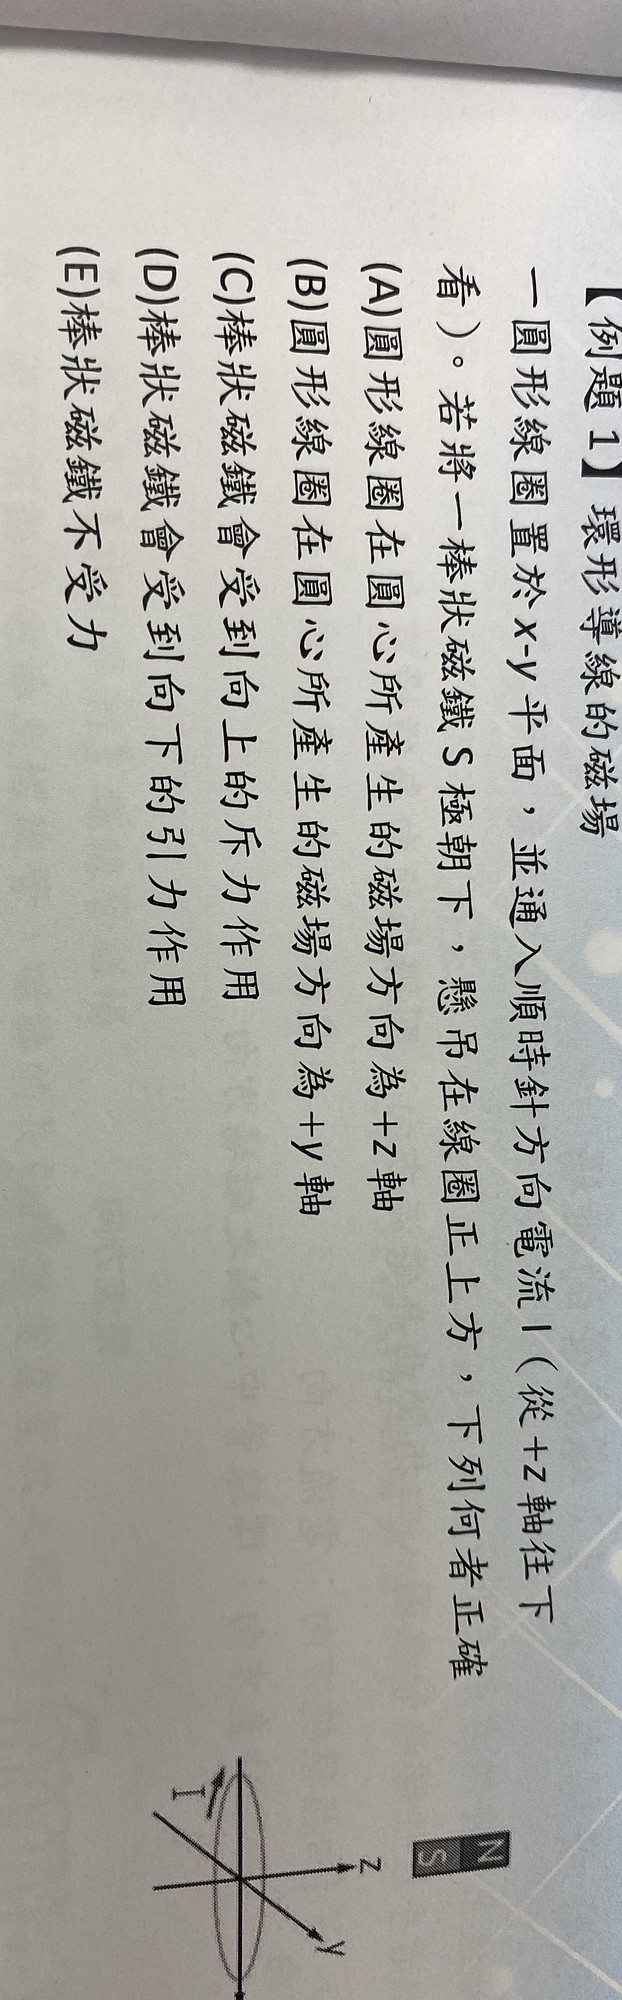 【例題 1】環形導線的磁場
一圓形線圈置於 x-y 平面，並通入順時針方向電流 I（從 +z 軸往下
看）。若將一棒狀磁鐵 S 極朝下，懸吊在線圈正上方，下列何者正確
(A)圓形線圈在圓心所產生的磁場方向為 +z 軸
(B)圓形線圈在圓心所產生的磁場方向為 +y 軸
(C)棒狀磁鐵會受到向上的斥力作用
(D)棒狀磁鐵會受到向下的引力作用
(E)棒狀磁鐵不受力
N
S
z
y
I